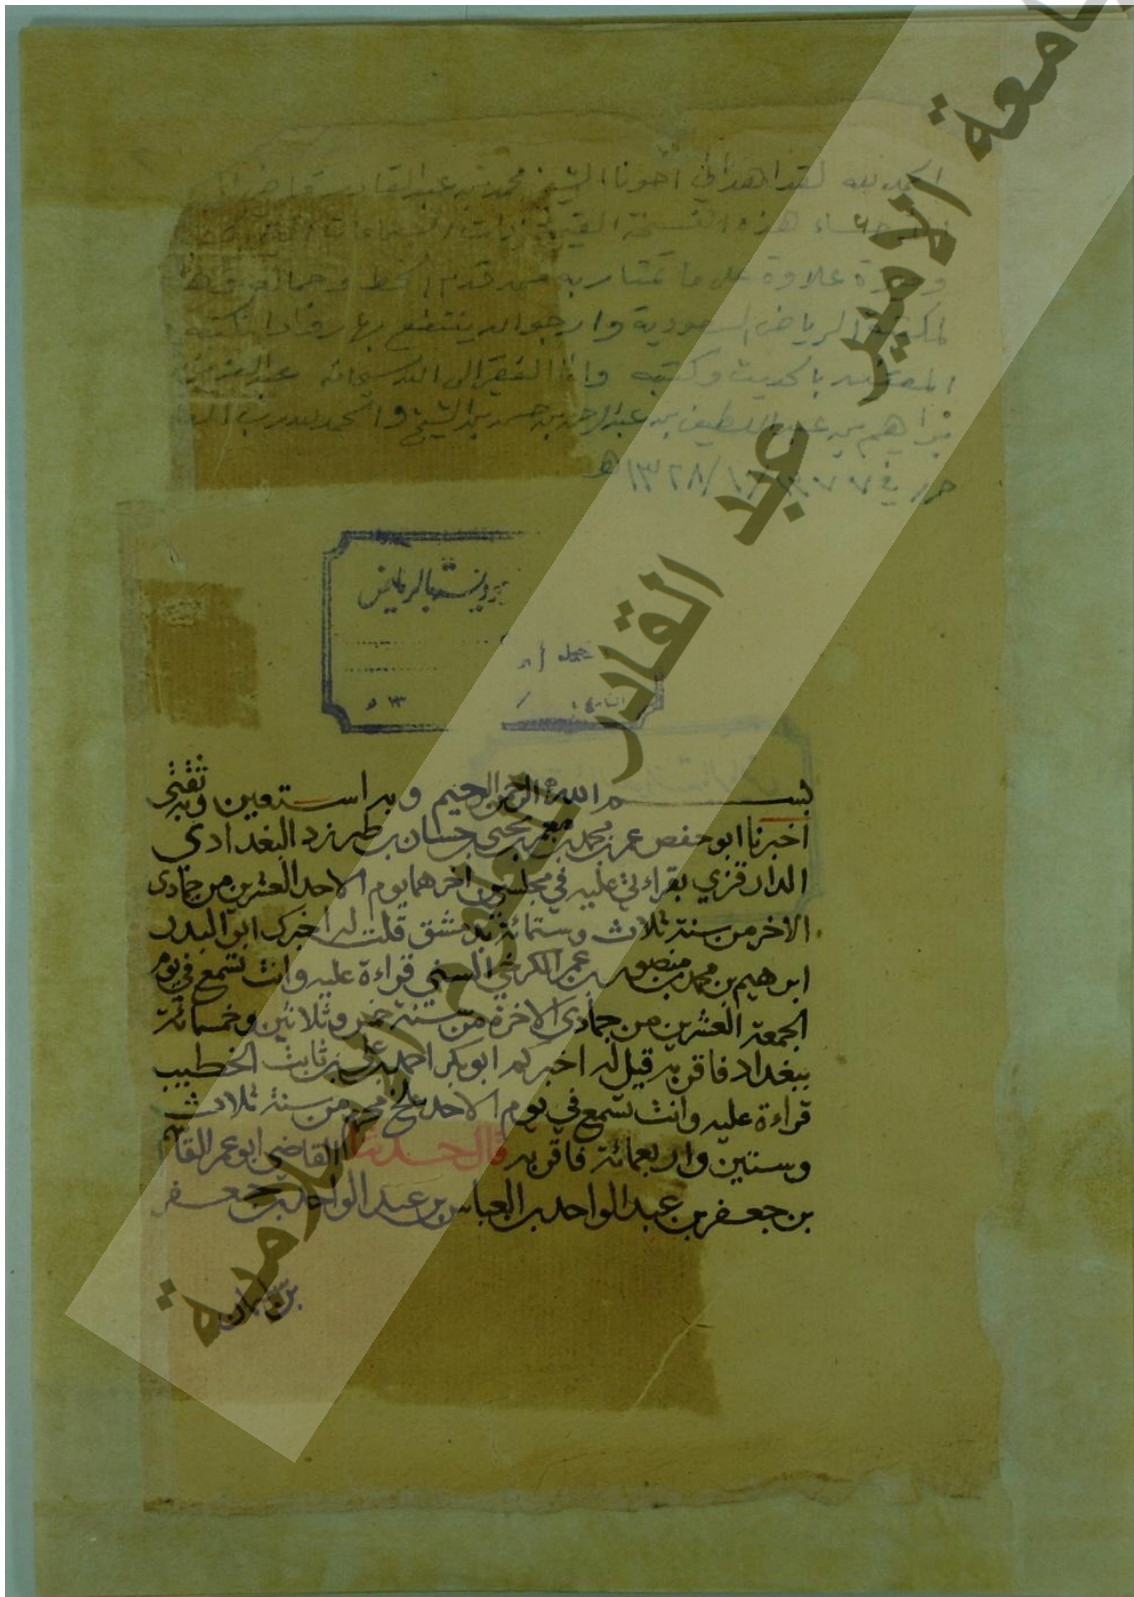 الحمد لله لقد اهدالي اخونا الشيخ محمد بن عبد القادر
هذه النسخة القيمة ذات السماعات
علاوة على ما تمتاز به من قدم الخط وجماله
الرياض السعودية وارجو ان ينتفع بها رواد المكتبه
بالحديث وكتبه وانا الفقير الى الله سبحانه عبد العزيز
بن عبد اللطيف بن عبد الرحمن بن حسن بن الشيخ والحمد لله رب
حرر في ١٣٢٨ه
بالرياض
١٣ ه
بسم الله الرحمن الرحيم وبه استعين وبه ثقتي
اخبرنا ابو حفص عمر بن محمد بن معمر بن يحيى بن حسان بن طبرزد البغدادي
الدارقزي بقراءتي عليه في مجلسين اخرهما يوم الاحد العشرين من جمادى
الاخر من سنة ثلاث وستمائة بدمشق قلت له اخبرك ابو البدر
ابرهيم بن محمد بن منصور بن عمر الكرخي السني قراءة عليه وانت تسمع في يوم
الجمعة العشرين من جمادى الاخرة من سنة خمس وثلاثين وخمسمائة
ببغداد فاقر به قيل له اخبركم ابو بكر احمد بن علي بن ثابت الخطيب
قراءة عليه وانت تسمع في يوم الاحد سلخ محرم من سنة ثلاث
وستين واربعمائة فاقر به قال حدثنا القاضي ابو عمر القاسم
بن جعفر بن عبد الواحد بن العباس بن عبد الواحد بن جعفر
بن سليمان
جامعة الأمير عبد القادر للعلوم الإسلامية